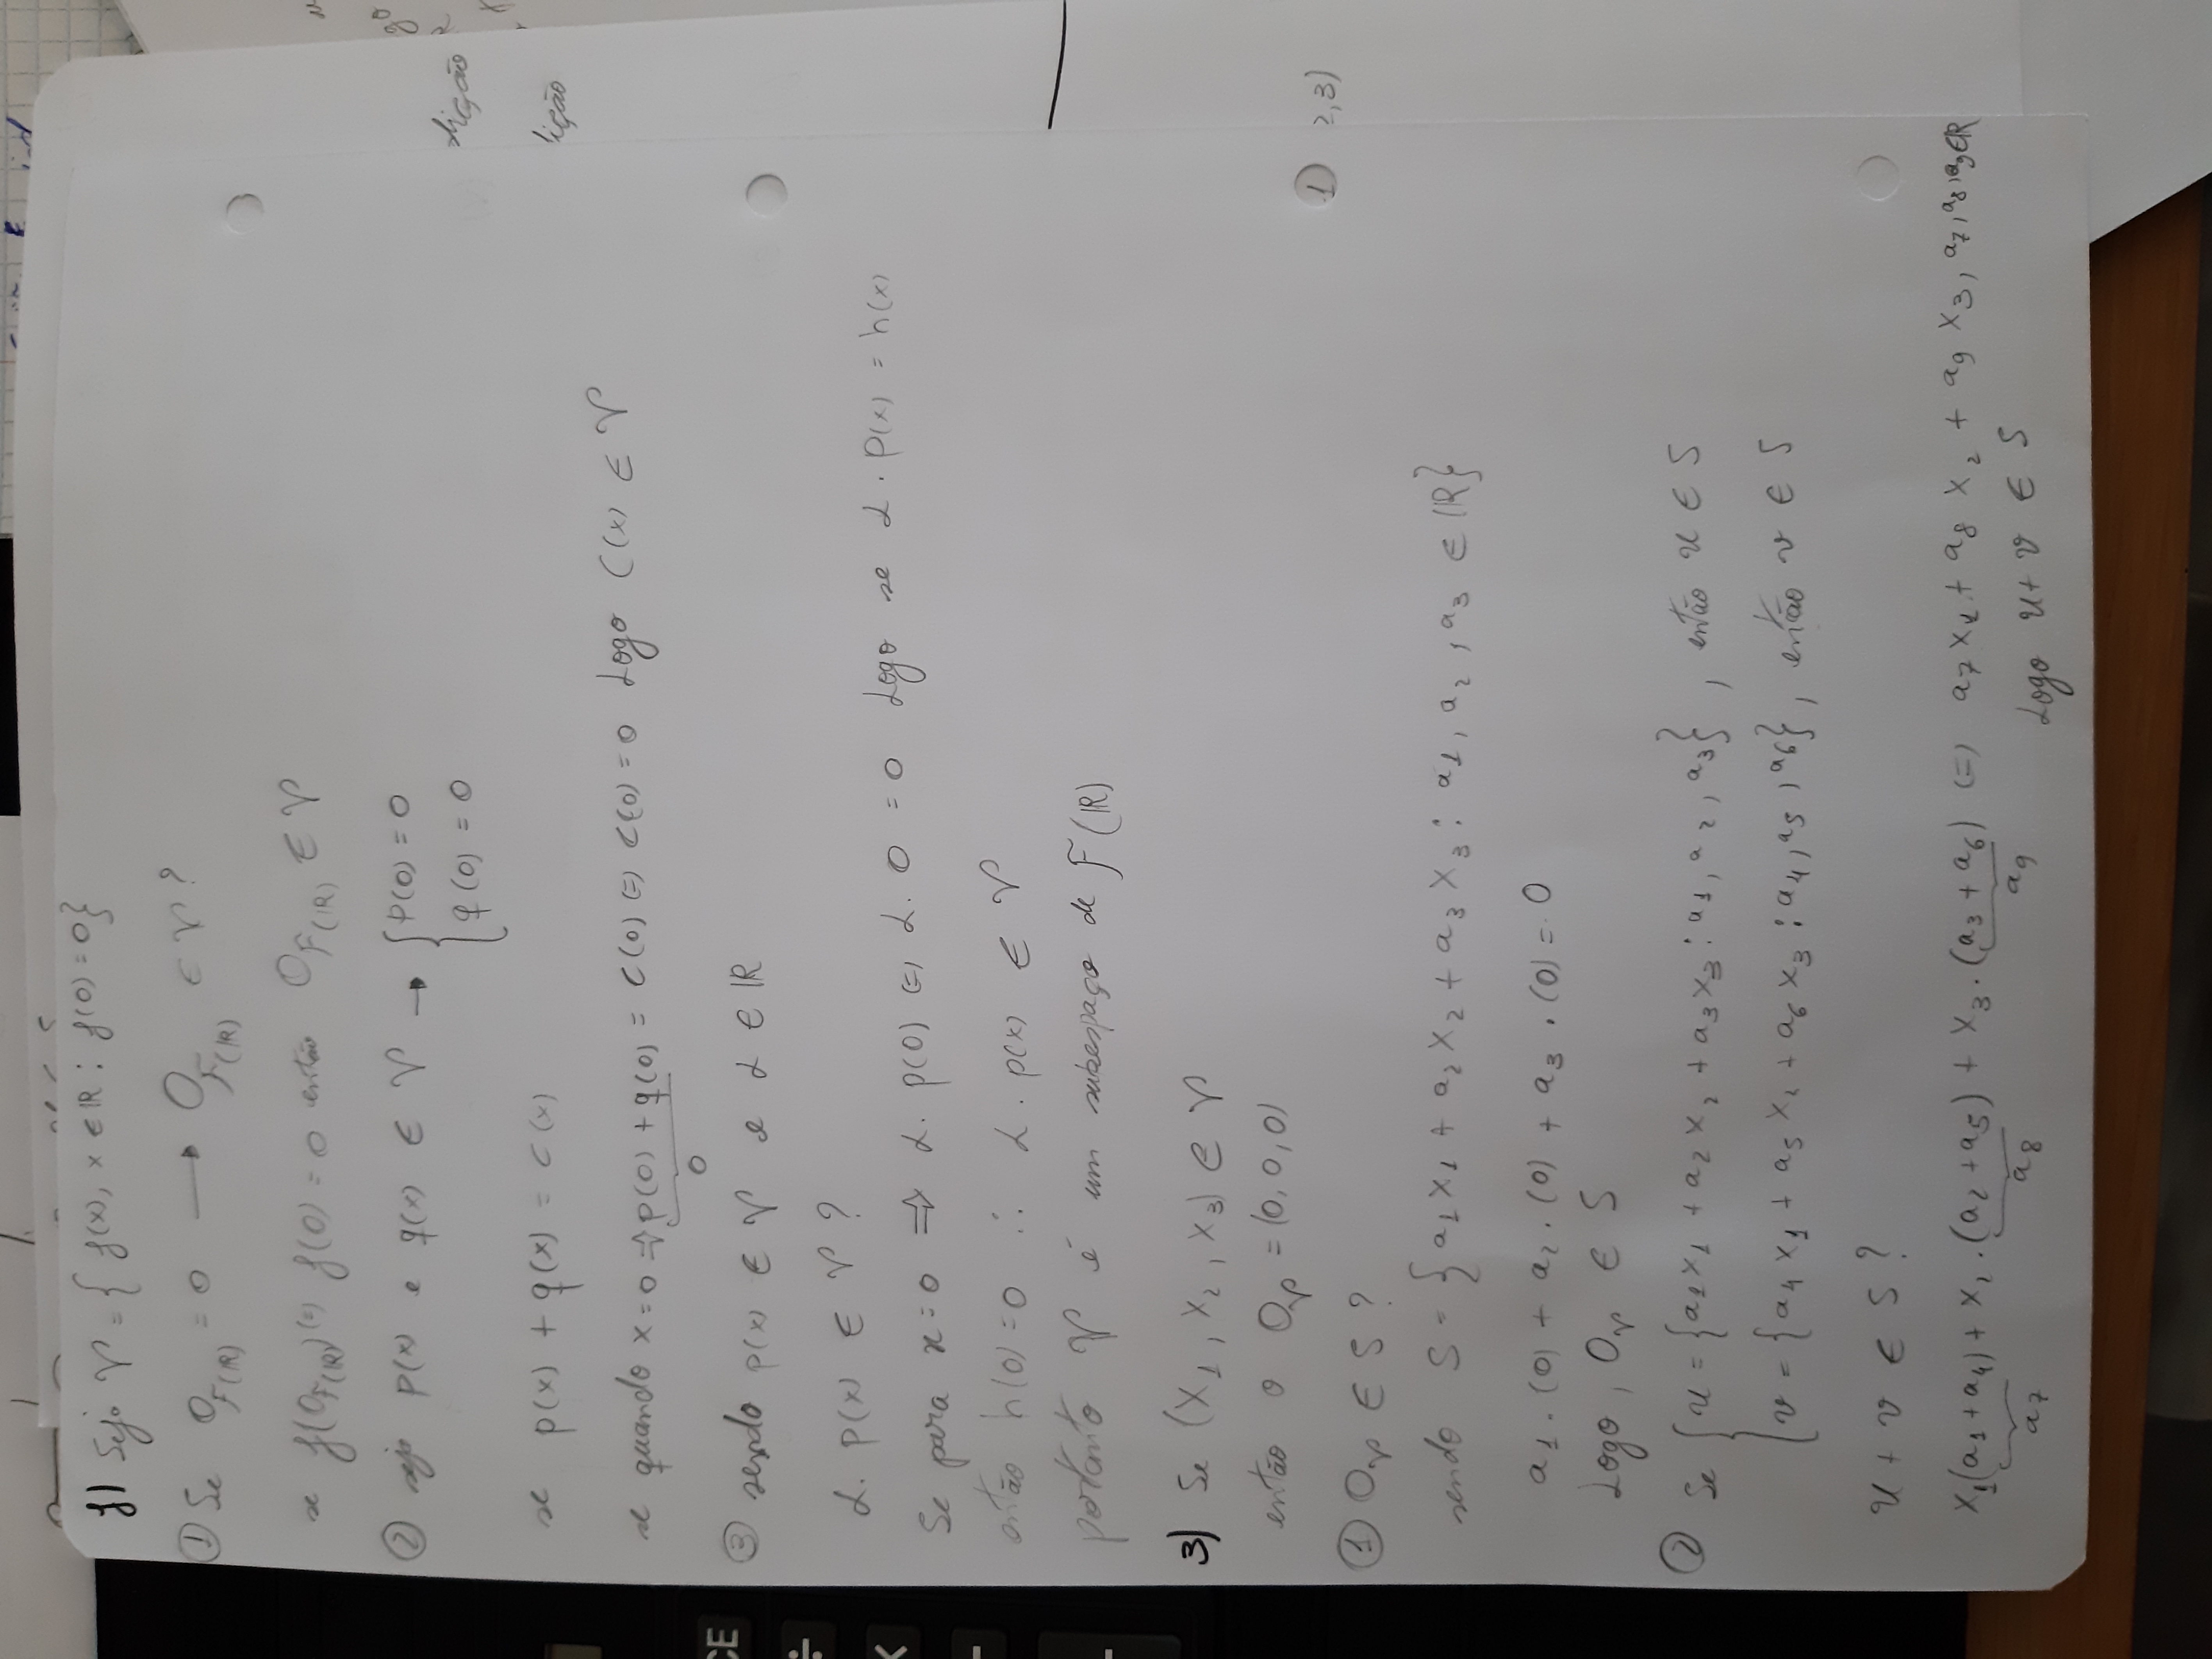 f) Seja V = { f(x), x ∈ ℝ : f(0) = 0}
① Se O_F(ℝ) = 0 → O_F(ℝ) ∈ V ?
se f(O_F(ℝ)) (=) f(0) = 0 então O_F(ℝ) ∈ V
② seja p(x) e q(x) ∈ V → { p(0) = 0
q(0) = 0
se p(x) + q(x) = c(x)
se quando x = 0 ⇒ p(0) + q(0) = c(0) (=) c(0) = 0 Logo C(x) ∈ V
0
③ sendo p(x) ∈ V e α ∈ ℝ
α . p(x) ∈ V ?
Se para x = 0 ⇒ α . p(0) (=) α . 0 = 0 Logo se α . p(x) = h(x)
então h(0) = 0 ∴ α . p(x) ∈ V
portanto V é um subespaço de F(ℝ)
3) Se (x₁, x₂, x₃) ∈ V
então o O_V = (0, 0, 0)
① O_V ∈ S ?
sendo S = { a₁x₁ + a₂x₂ + a₃x₃ : a₁, a₂, a₃ ∈ ℝ}
a₁ . (0) + a₂ . (0) + a₃ . (0) = 0
Logo, O_V ∈ S
② Se { u = {a₁x₁ + a₂x₂ + a₃x₃ : a₁, a₂, a₃}, então u ∈ S
v = {a₄x₁ + a₅x₂ + a₆x₃ : a₄, a₅, a₆}, então v ∈ S
u + v ∈ S ?
x₁(a₁ + a₄) + x₂ . (a₂ + a₅) + x₃ . (a₃ + a₆) (=) a₇x₁ + a₈x₂ + a₉x₃, a₇, a₈, a₉ ∈ ℝ
a₇ a₈ a₉
Logo u + v ∈ S
1
2,3)
CE
÷